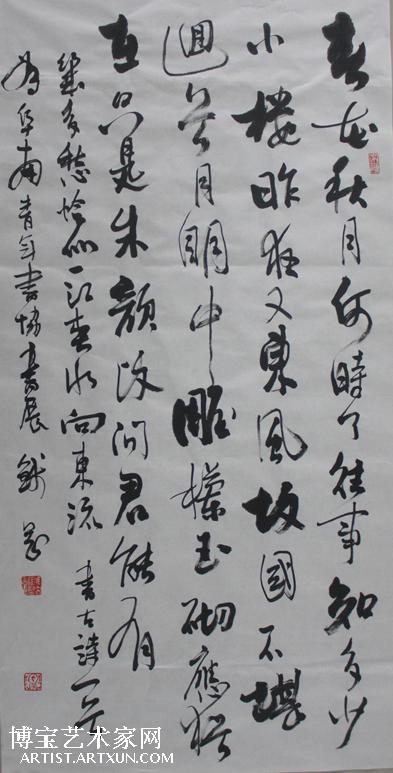 春花秋月何時了往事知多少
小樓昨夜又東風故國不堪
迴首月明中雕欄玉砌應猶
在只是朱顏改問君能有
幾多愁恰似一江春水向東流 書古詩一首
為華南青年書協書展
博宝艺术家网
ARTIST.ARTXUN.COM